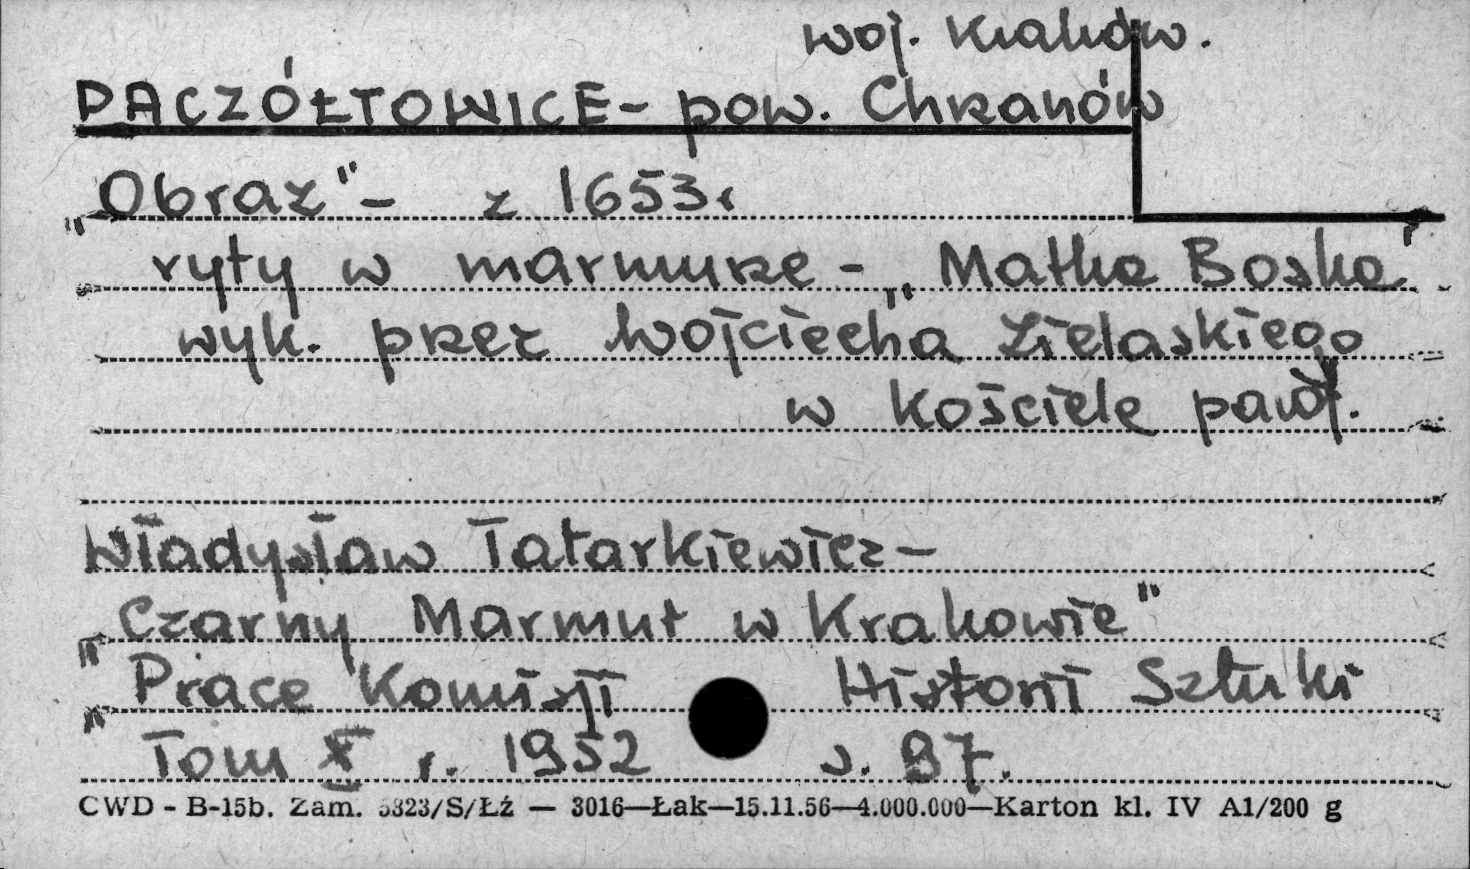 woj. Kraków.
PACZÓŁTOWICE - pow. Chrzanów
„Obraz" - z 1653r
ryty w marmurze - „Matka Boska"
wyk. przez Wojciecha Zielaskiego
w kościele paraf.
Władysław Tatarkiewicz -
„Czarny Marmur w Krakowie"
„Prace Komisji Historii Sztuki
Tom X r. 1952 s. 97.
CWD - B-15b. Zam. 5323/S/Łź — 3016—Łak—15.11.56—4.000.000—Karton kl. IV A1/200 g